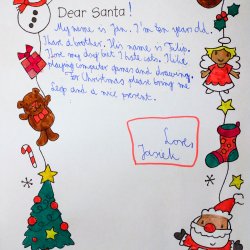 Dear Santa!
My name is Jan. I'm ten years old.
I have a brother. His name is Filip.
I love my dog but I hate cats. I like
playing computer games and drawing.
For Christmas please bring me
Lego and a nice present.
Love,
Jasiek